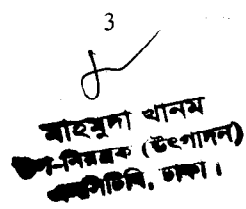 3
মাহমুদা খানম
উপ-নিয়ন্ত্রক (উৎপাদন)
এনসিটিবি, ঢাকা।